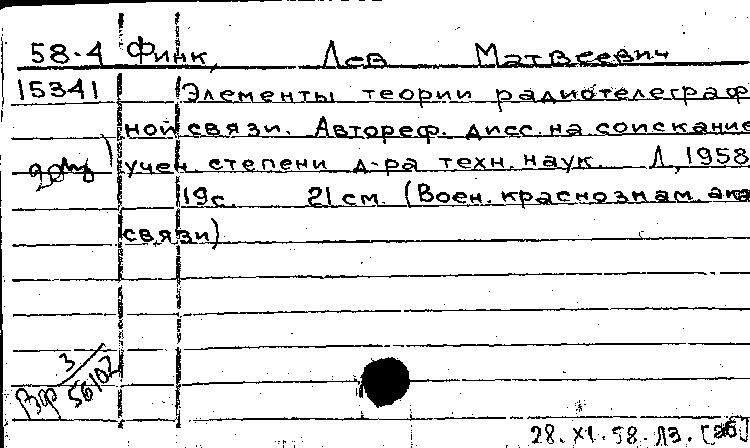 58-4 Финк, Лев Матвеевич
15341 Элементы теории радиотелеграф
ной связи. Автореф. дисс. на соискание
учен. степени д-ра техн. наук. Л, 1958
19с. 21 см. (Воен. краснознам. ака
связи)
Вдр 3
56102
28.XI.58.